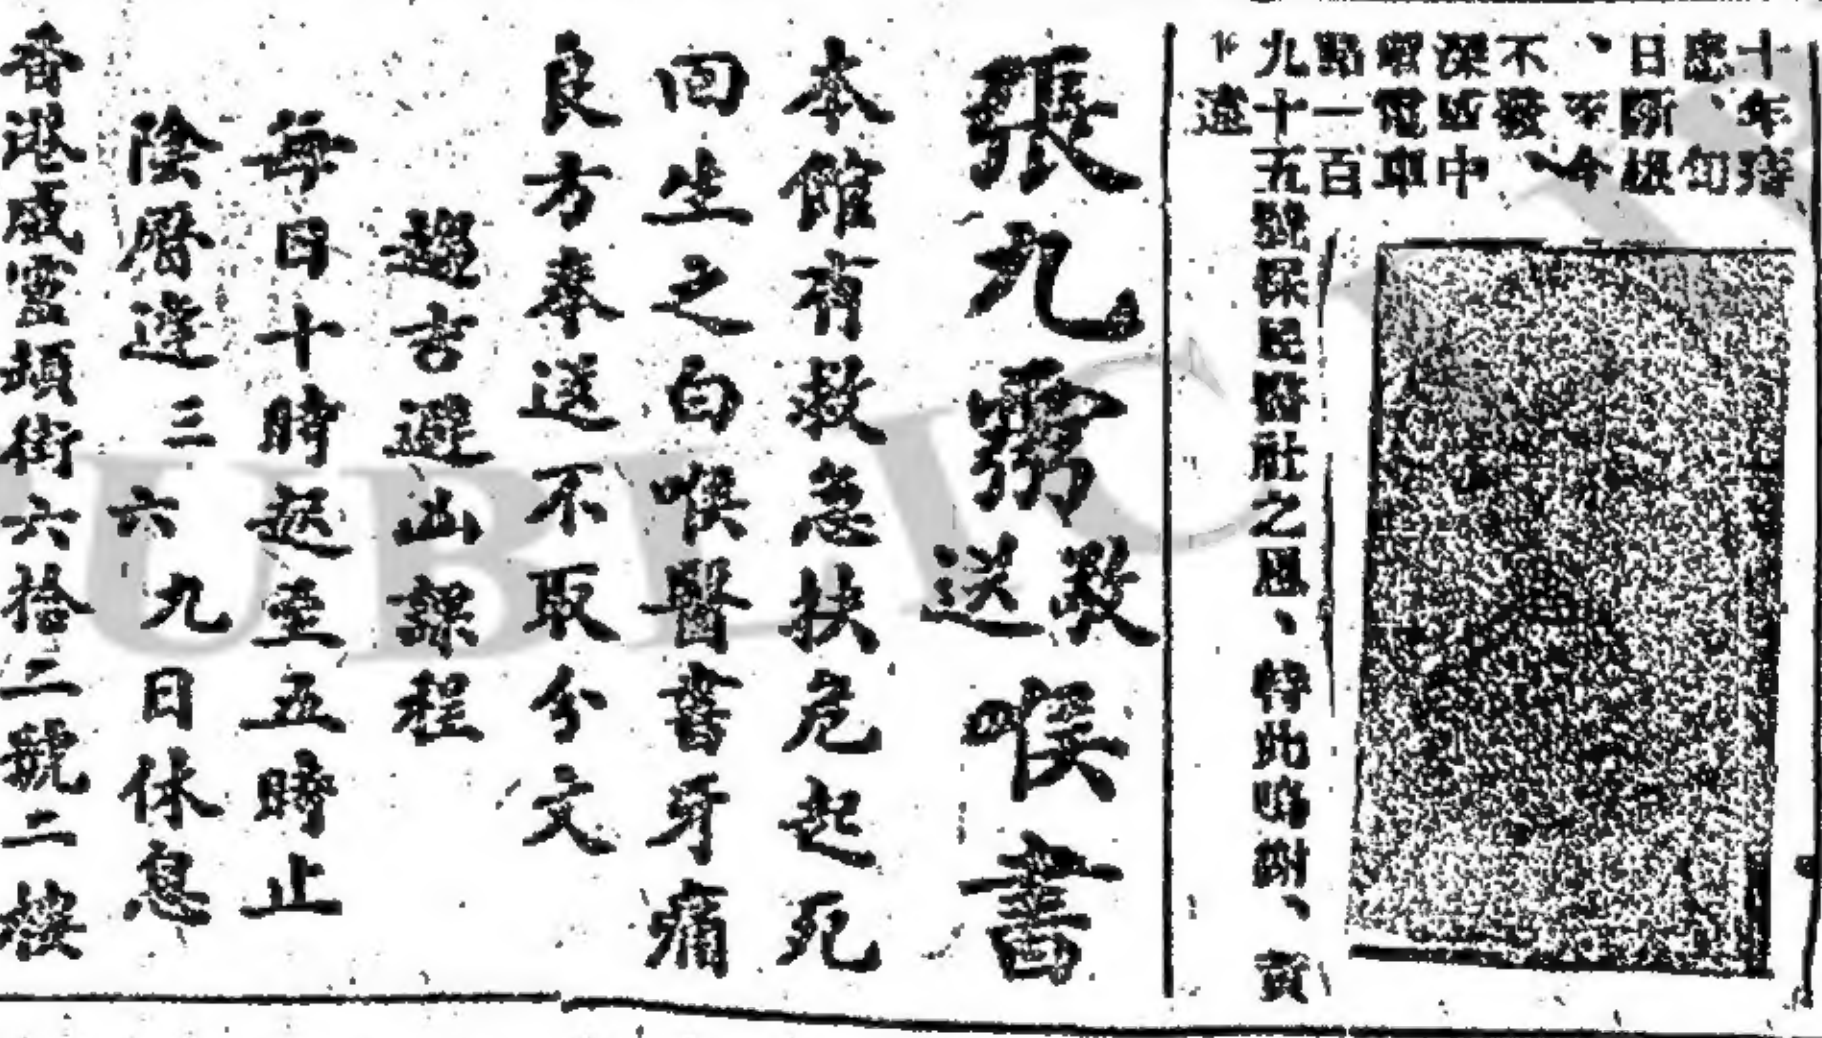 十年痞
患、旬
日斷根
不發、
中
環電車
點一百
九十五號保民醫社之恩、特此鳴謝、黃
遠
張九
敬送
喉書
本館有救急扶危起死
回生之白喉醫書牙痛
良方奉送不取分文
趨吉避凶課程
每日十時起至五時止
陰曆逢三六九日休息
香港威靈頓街六拾二號二樓